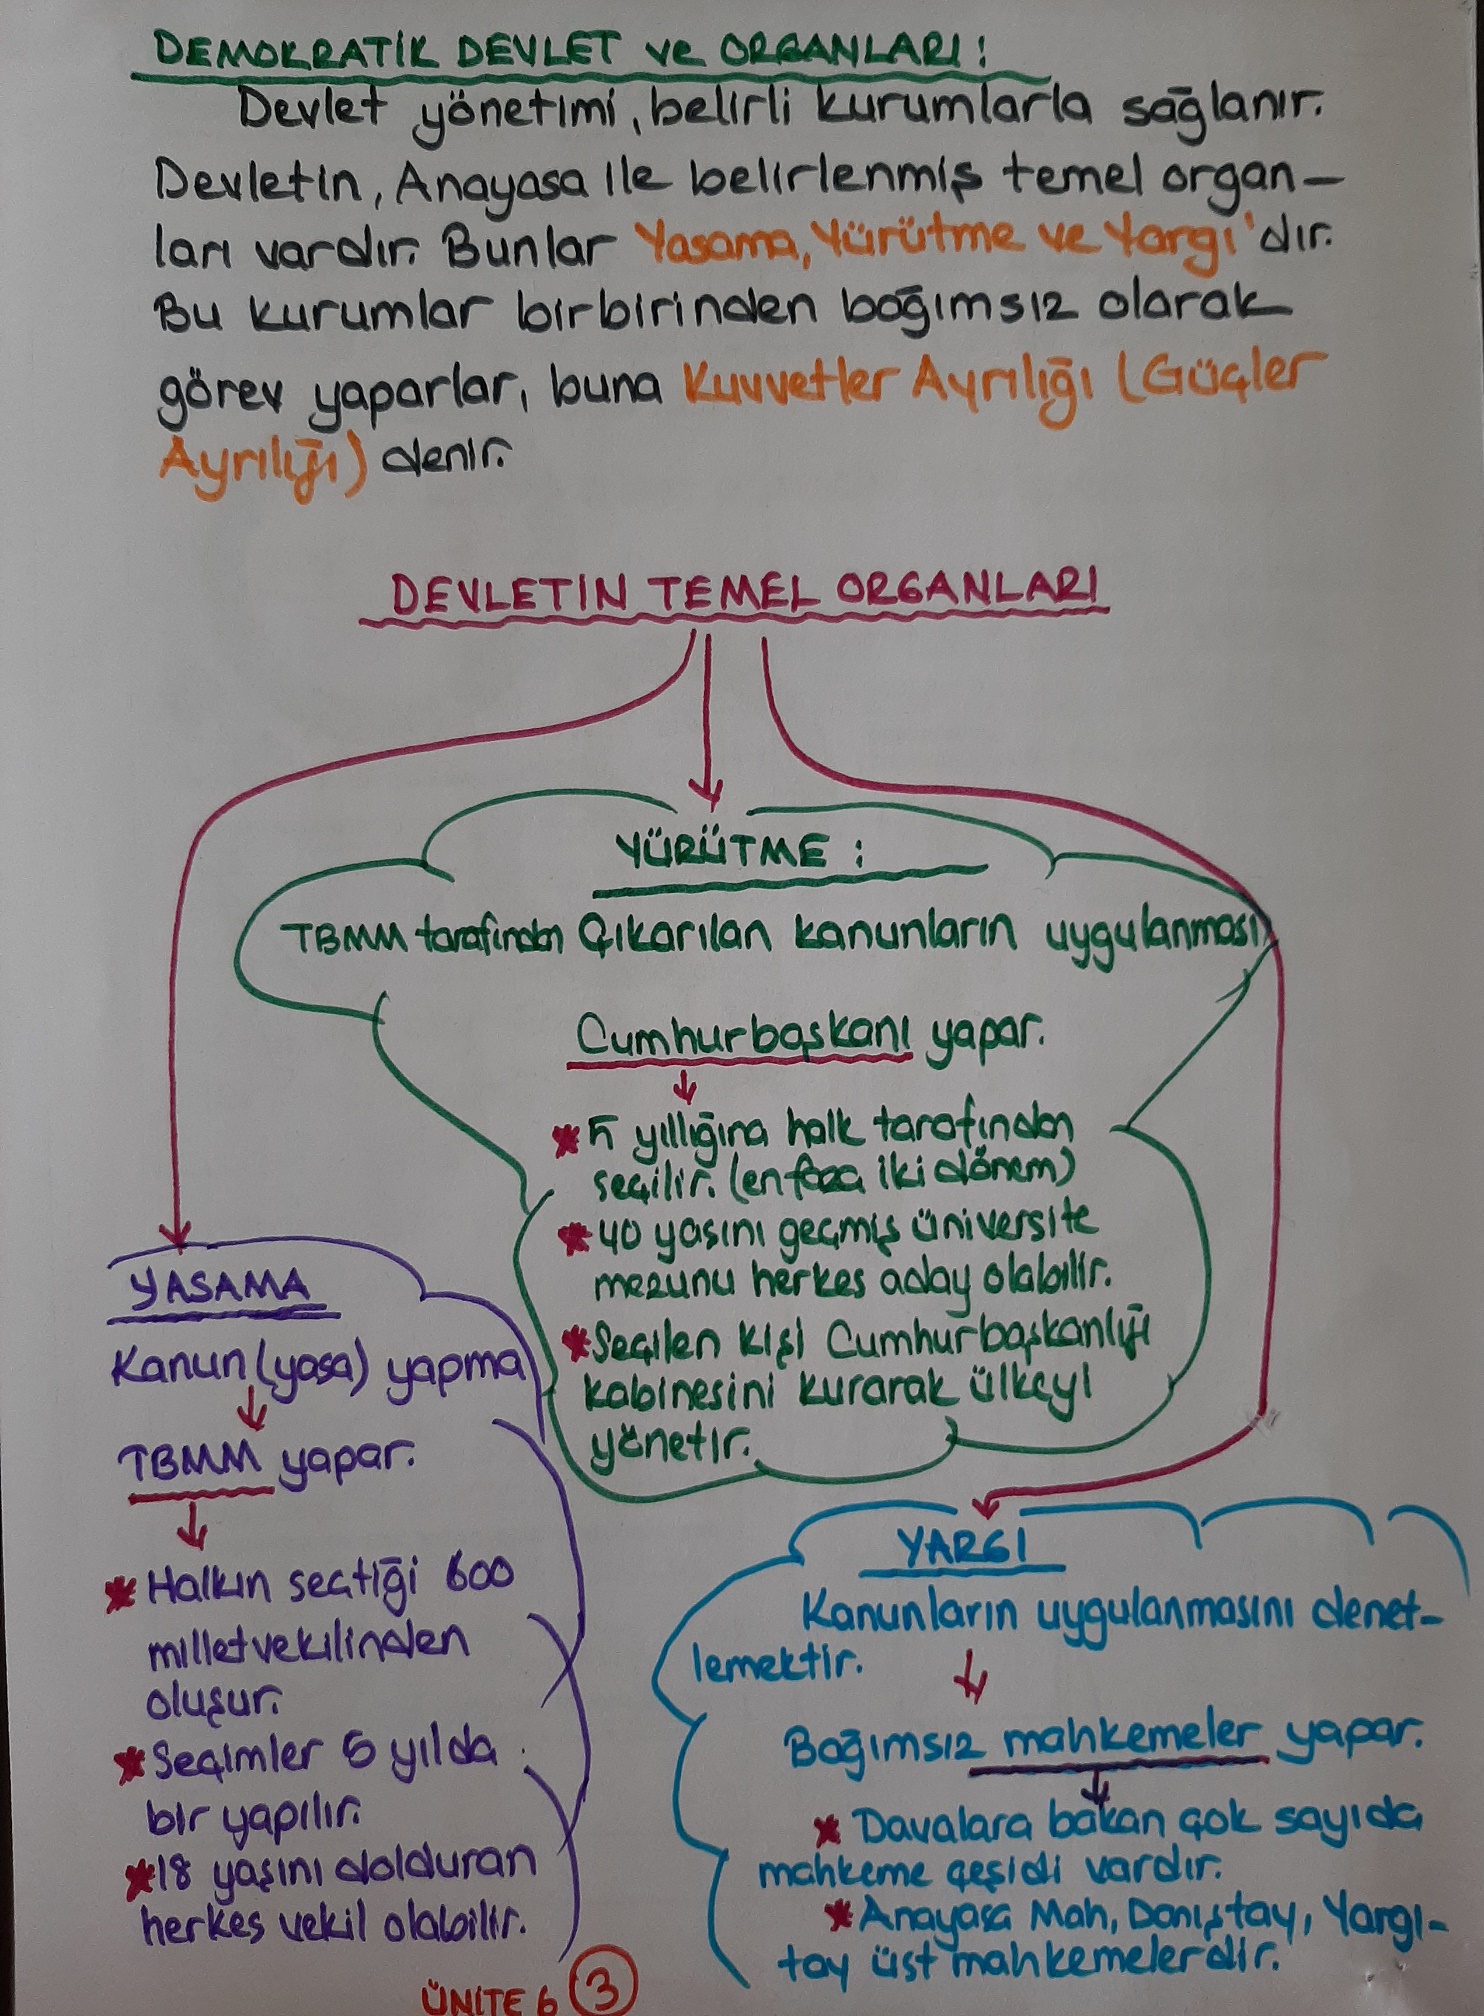 DEMOKRATİK DEVLET ve ORGANLARI :
Devlet yönetimi, belirli kurumlarla sağlanır.
Devletin, Anayasa ile belirlenmiş temel organ-
ları vardır. Bunlar Yasama, Yürütme ve Yargı'dır.
Bu kurumlar birbirinden bağımsız olarak
görev yaparlar, buna Kuvvetler Ayrılığı (Güçler
Ayrılığı) denir.
DEVLETİN TEMEL ORGANLARI
YÜRÜTME :
TBMM tarafından çıkarılan kanunların uygulanması
Cumhurbaşkanı yapar.
* 5 yıllığına halk tarafından
seçilir. (en fazla iki dönem)
* 40 yaşını geçmiş üniversite
mezunu herkes aday olabilir.
* Seçilen kişi Cumhurbaşkanlığı
kabinesini kurarak ülkeyi
yönetir.
YASAMA
Kanun (yasa) yapma
TBMM yapar.
* Halkın seçtiği 600
milletvekilinden
oluşur.
* Seçimler 5 yılda
bir yapılır.
* 18 yaşını dolduran
herkes vekil olabilir.
YARGI
Kanunların uygulanmasını denet-
lemektir.
Bağımsız mahkemeler yapar.
* Davalara bakan çok sayıda
mahkeme çeşidi vardır.
* Anayasa Mah, Danıştay, Yargı-
tay üst mahkemelerdir.
ÜNİTE 6 3